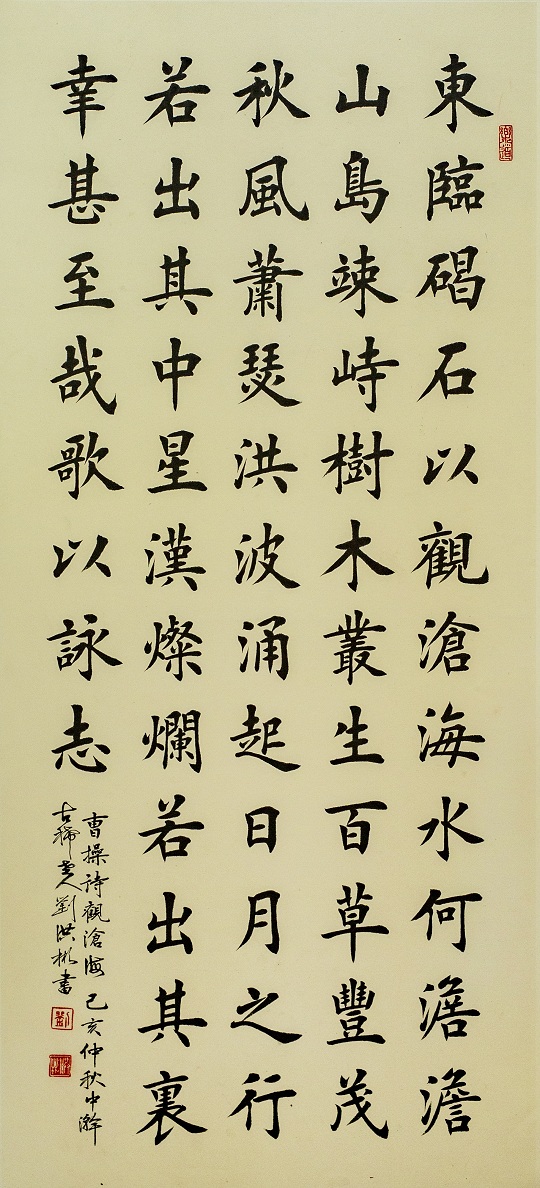 東臨碣石以觀滄海水何澹澹
山島竦峙樹木叢生百草豐茂
秋風蕭瑟洪波涌起日月之行
若出其中星漢燦爛若出其裏
幸甚至哉歌以詠志
曹操詩觀滄海 己亥仲秋中澣
古稀叟人劉洪彬書